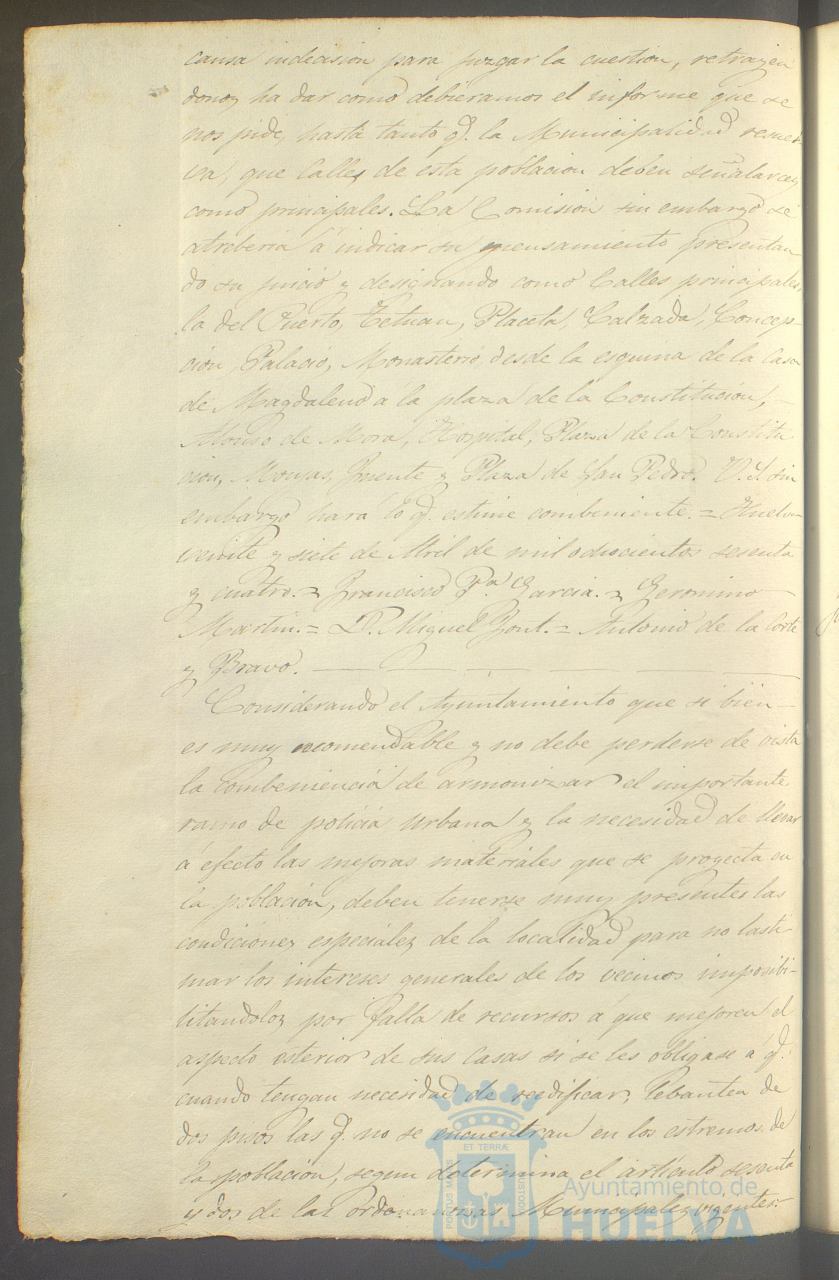 causa indicision para juzgar la cuestion, retrayen
donos ha dar como debieramos el informe que se
nos pide, hasta tanto q.e la Municipalidad resuel
va, que Calles de esta poblacion deben señalarces
como principales. La Comision sin embargo se
atreberia á indicar su pensamiento presentan
do su juicio y designando como Calles principales
la del Puerto, Tetuan, Placeta, Calzada, Concep-
cion, Palacio, Monasterio, desde la esquina de la Casa
de Magdaleno á la plaza de la Constitucion,
Alonso de Mora, Hospital, Plaza de la Constitu
cion, Monjas, Fuente y Plaza de San Pedro. V.S. sin
embargo hará lo q.e estime combeniente. = Huelva
veinte y siete de Abril de mil ochocientos sesenta
y cuatro. = Francisco P.a Garcia. = Geronimo
Martin. = D. Miguel Font. = Antonio de la Corte
y Bravo.
Considerando el Ayuntamiento que si bien
es muy recomendable y no debe perderse de vista
la combeniencia de armonizar el importante
ramo de policia urbana y la necesidad de llevar
á efecto las mejoras materiales que se proyecta en
la poblacion, deben tenerse muy presentes las
condiciones especiales de la localidad para no lasti-
mar los intereses generales de los vecinos imposibi-
litandolos por falta de recursos á que mejoren el
aspecto esterior de sus casas si se les obligase á q.e
cuando tengan necesidad de reedificar, lebanten de
dos pisos las q.e no se encuentran en los estremos de
la poblacion, segun determina el artículo sesenta
y dos de las ordenanzas Municipales vigentes.
PORTUS MARIS ET TERRÆ CUSTODIA
Ayuntamiento de
HUELVA